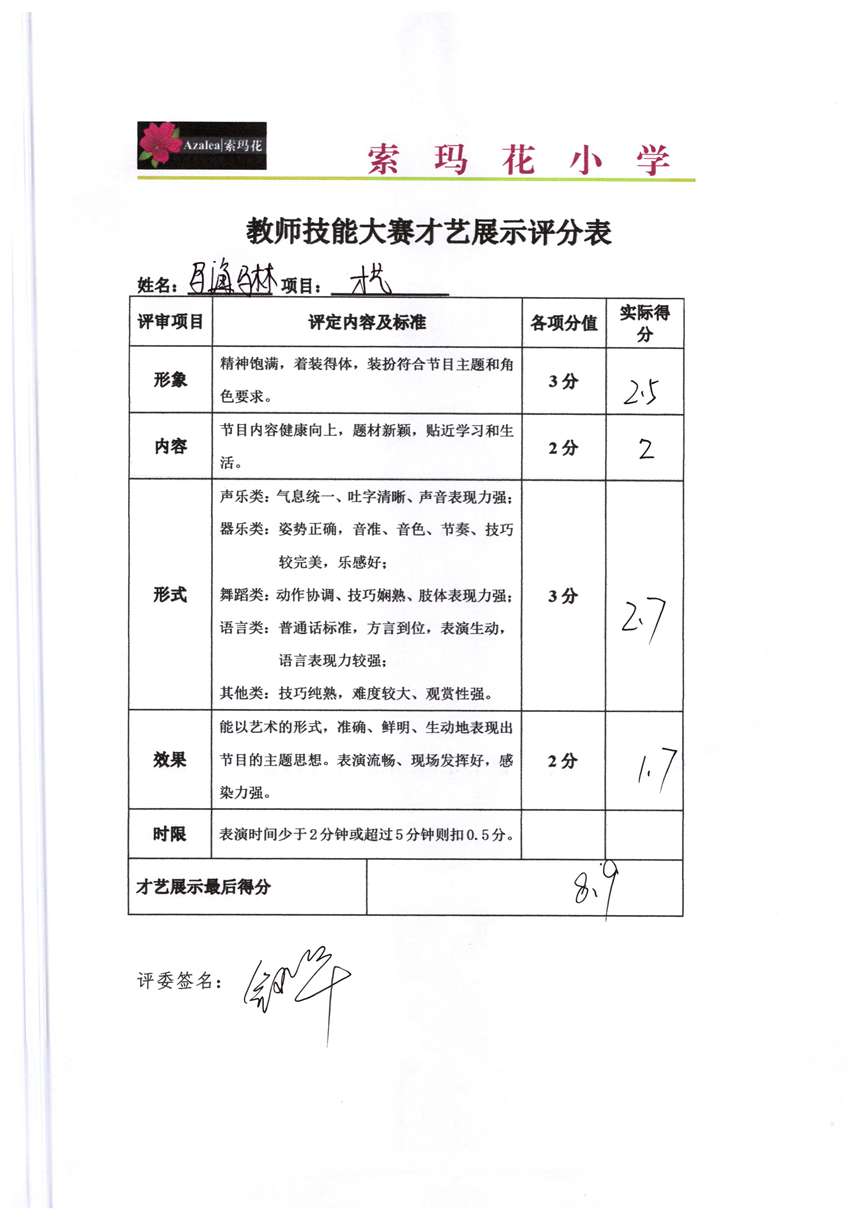 Azalea|索玛花
索玛花小学
教师技能大赛才艺展示评分表
姓名： 项目：
评审项目 评定内容及标准 各项分值 实际得
分
形象 精神饱满，着装得体，装扮符合节目主题和角
色要求。 3分 2.5
内容 节目内容健康向上，题材新颖，贴近学习和生
活。 2分 2
声乐类：气息统一、吐字清晰、声音表现力强；
器乐类：姿势正确，音准、音色、节奏、技巧
较完美，乐感好；
形式 舞蹈类：动作协调、技巧娴熟、肢体表现力强； 3分 2.7
语言类：普通话标准，方言到位，表演生动，
语言表现力较强；
其他类：技巧纯熟，难度较大、观赏性强。
能以艺术的形式，准确、鲜明、生动地表现出
效果 节目的主题思想。表演流畅、现场发挥好，感 2分 1.7
染力强。
时限 表演时间少于2分钟或超过5分钟则扣0.5分。
才艺展示最后得分 8.9
评委签名：